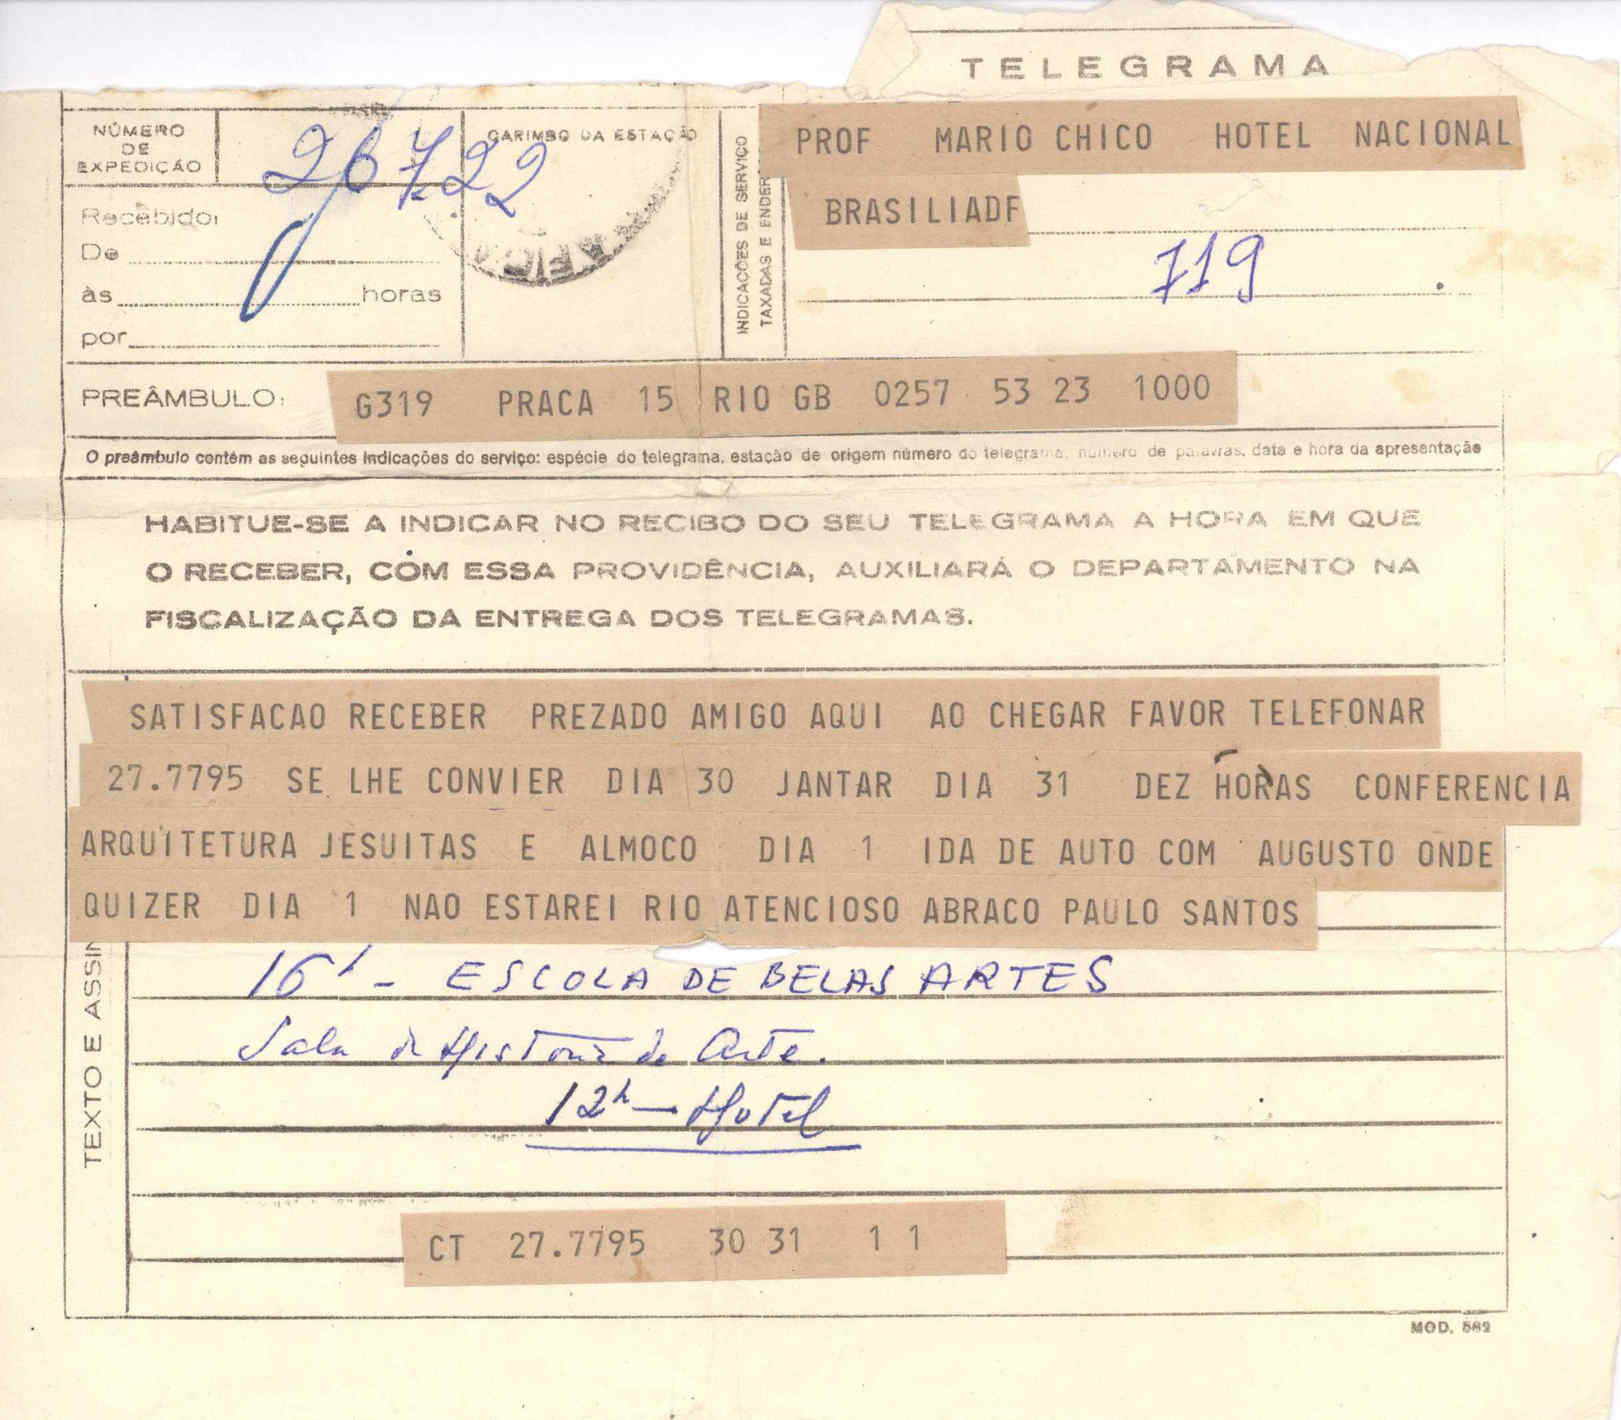 TELEGRAMA
NÚMERO
DE
EXPEDIÇÃO
26722
CARIMBO DA ESTAÇÃO
INDICAÇÕES DE SERVIÇO
TAXADAS E ENDER
PROF MARIO CHICO HOTEL NACIONAL
BRASILIADF
719
Recebido:
De
às horas
por
PREÂMBULO:
G319 PRACA 15 RIO GB 0257 53 23 1000
O preâmbulo contém as seguintes indicações do serviço: espécie do telegrama, estação de origem número do telegrama, número de palavras, data e hora da apresentação
HABITUE-SE A INDICAR NO RECIBO DO SEU TELEGRAMA A HORA EM QUE
O RECEBER, COM ESSA PROVIDÊNCIA, AUXILIARÁ O DEPARTAMENTO NA
FISCALIZAÇÃO DA ENTREGA DOS TELEGRAMAS.
SATISFACAO RECEBER PREZADO AMIGO AQUI AO CHEGAR FAVOR TELEFONAR
27.7795 SE LHE CONVIER DIA 30 JANTAR DIA 31 DEZ HORAS CONFERENCIA
ARQUITETURA JESUITAS E ALMOCO DIA 1 IDA DE AUTO COM AUGUSTO ONDE
QUIZER DIA 1 NAO ESTAREI RIO ATENCIOSO ABRACO PAULO SANTOS
TEXTO E ASSIN
16h - ESCOLA DE BELAS ARTES
Sala de Historia de Arte.
12h - Hotel
CT 27.7795 30 31 1 1
MOD. 582